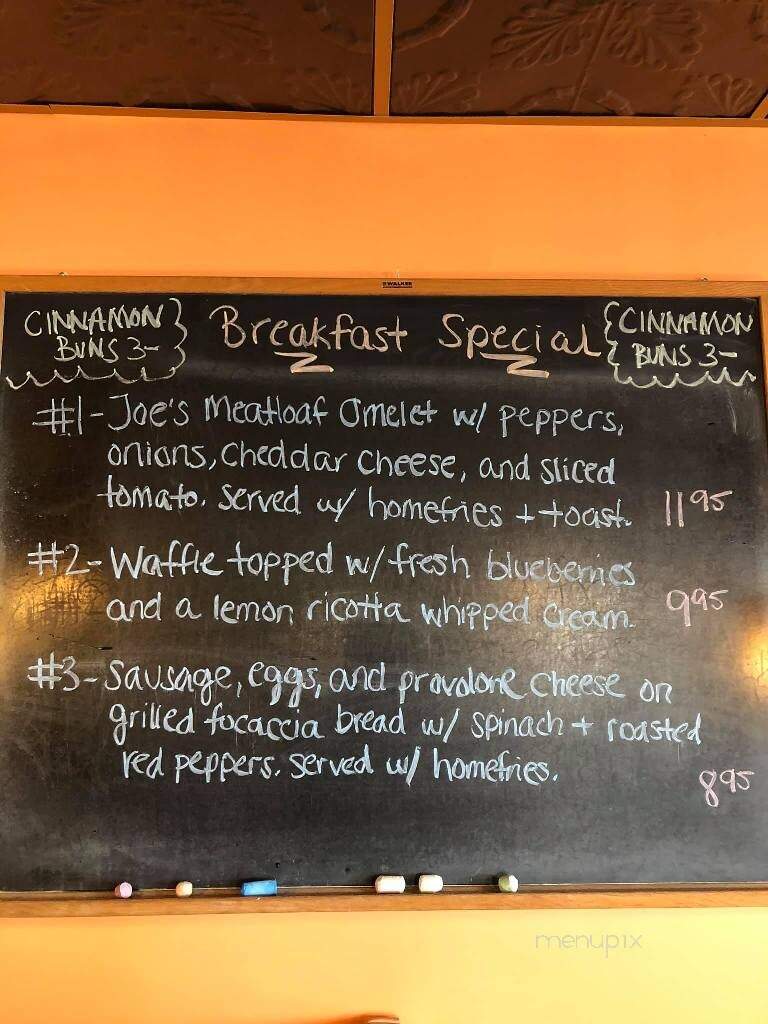 WALKER
CINNAMON
BUNS 3-
Breakfast Special
CINNAMON
BUNS 3-
#1- Joe's Meatloaf Omelet w/ peppers,
onions, cheddar cheese, and sliced
tomato. Served w/ homefries + toast. 11 95
#2- Waffle topped w/ fresh blueberries
and a lemon ricotta whipped cream. 9 95
#3- Sausage, eggs, and provolone cheese on
grilled focaccia bread w/ spinach + roasted
red peppers. Served w/ homefries.
8 95
menupix